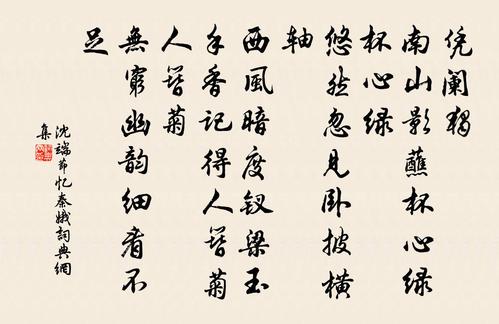 凭阑独
南山影蘸杯心绿
杯心绿
悠然忽见卧披横
轴
西风暗度钗梁玉
手香记得人簪菊
人簪菊
無窮幽韵细看不
足
沈端节忆秦娥詞典網
集